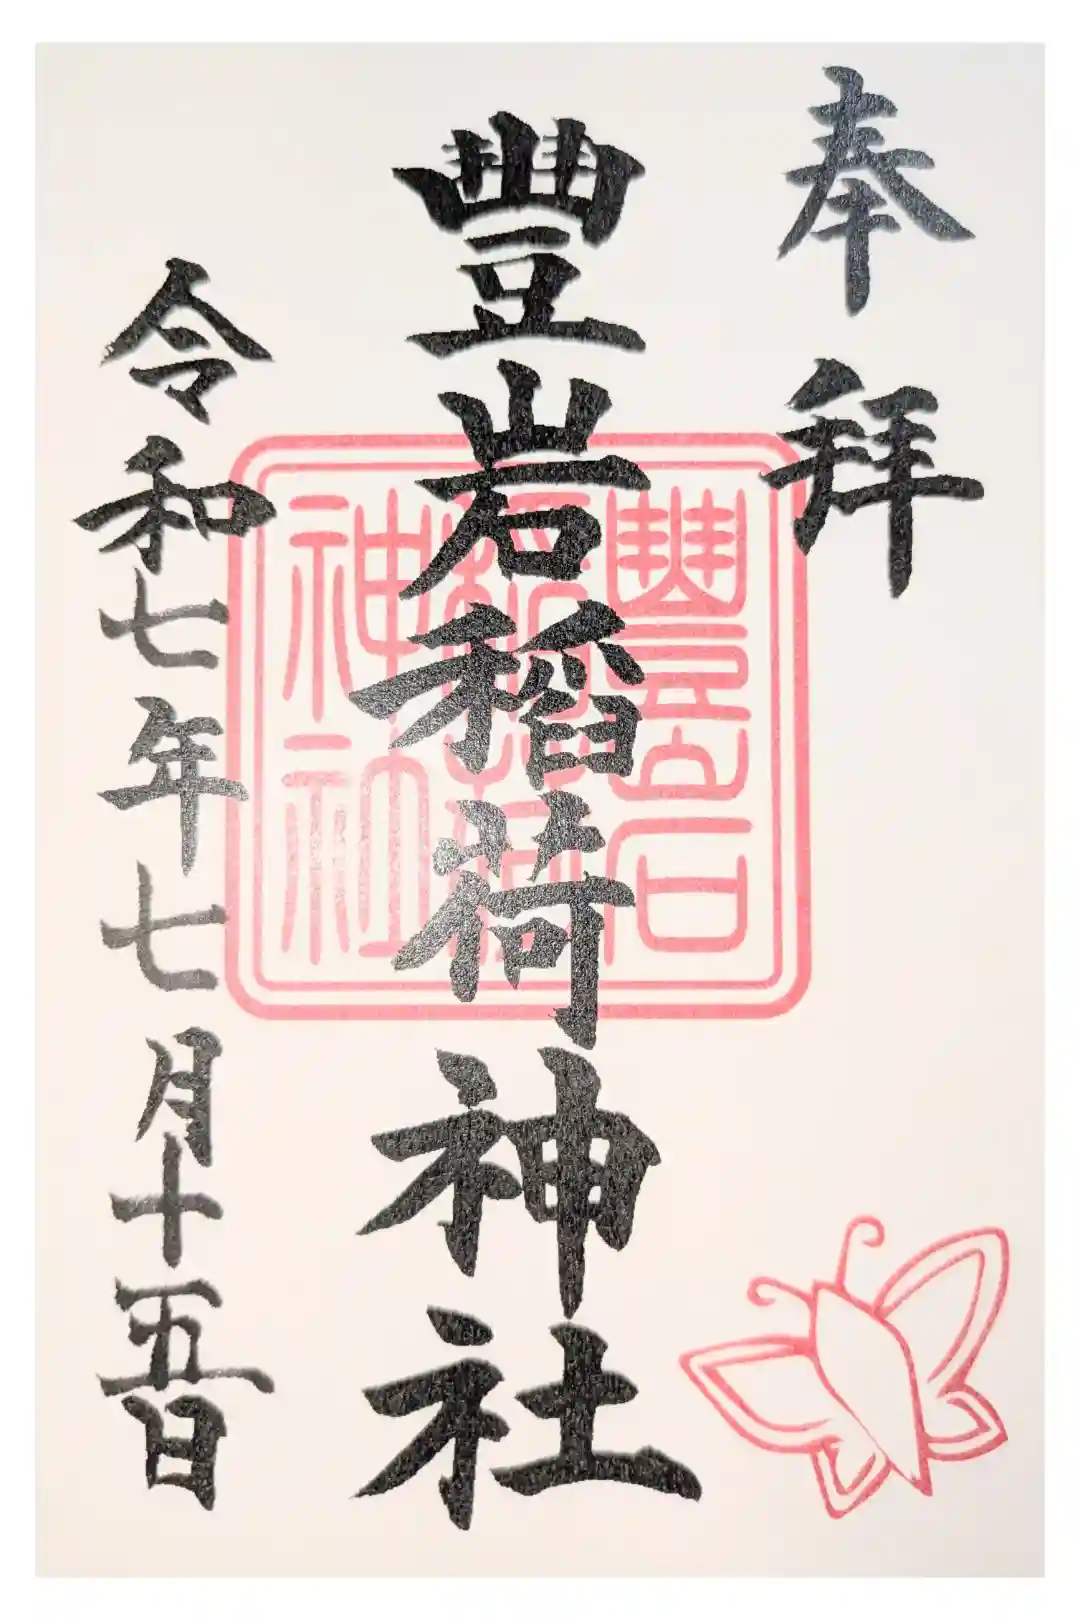 奉拜
豐岩稻荷神社
令和七年七月十五日
豐岩
稲荷
神社